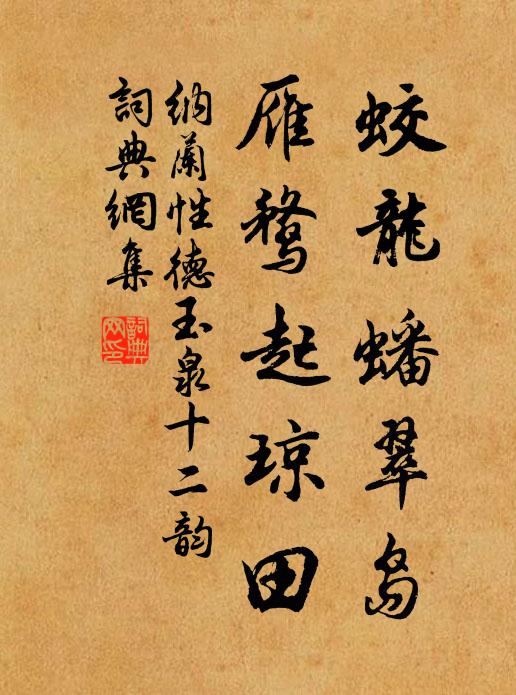 蛟龍蟠翠島
雁鶩起琼田
納蘭性德玉泉十二韵
詞典網集
詞典
网印